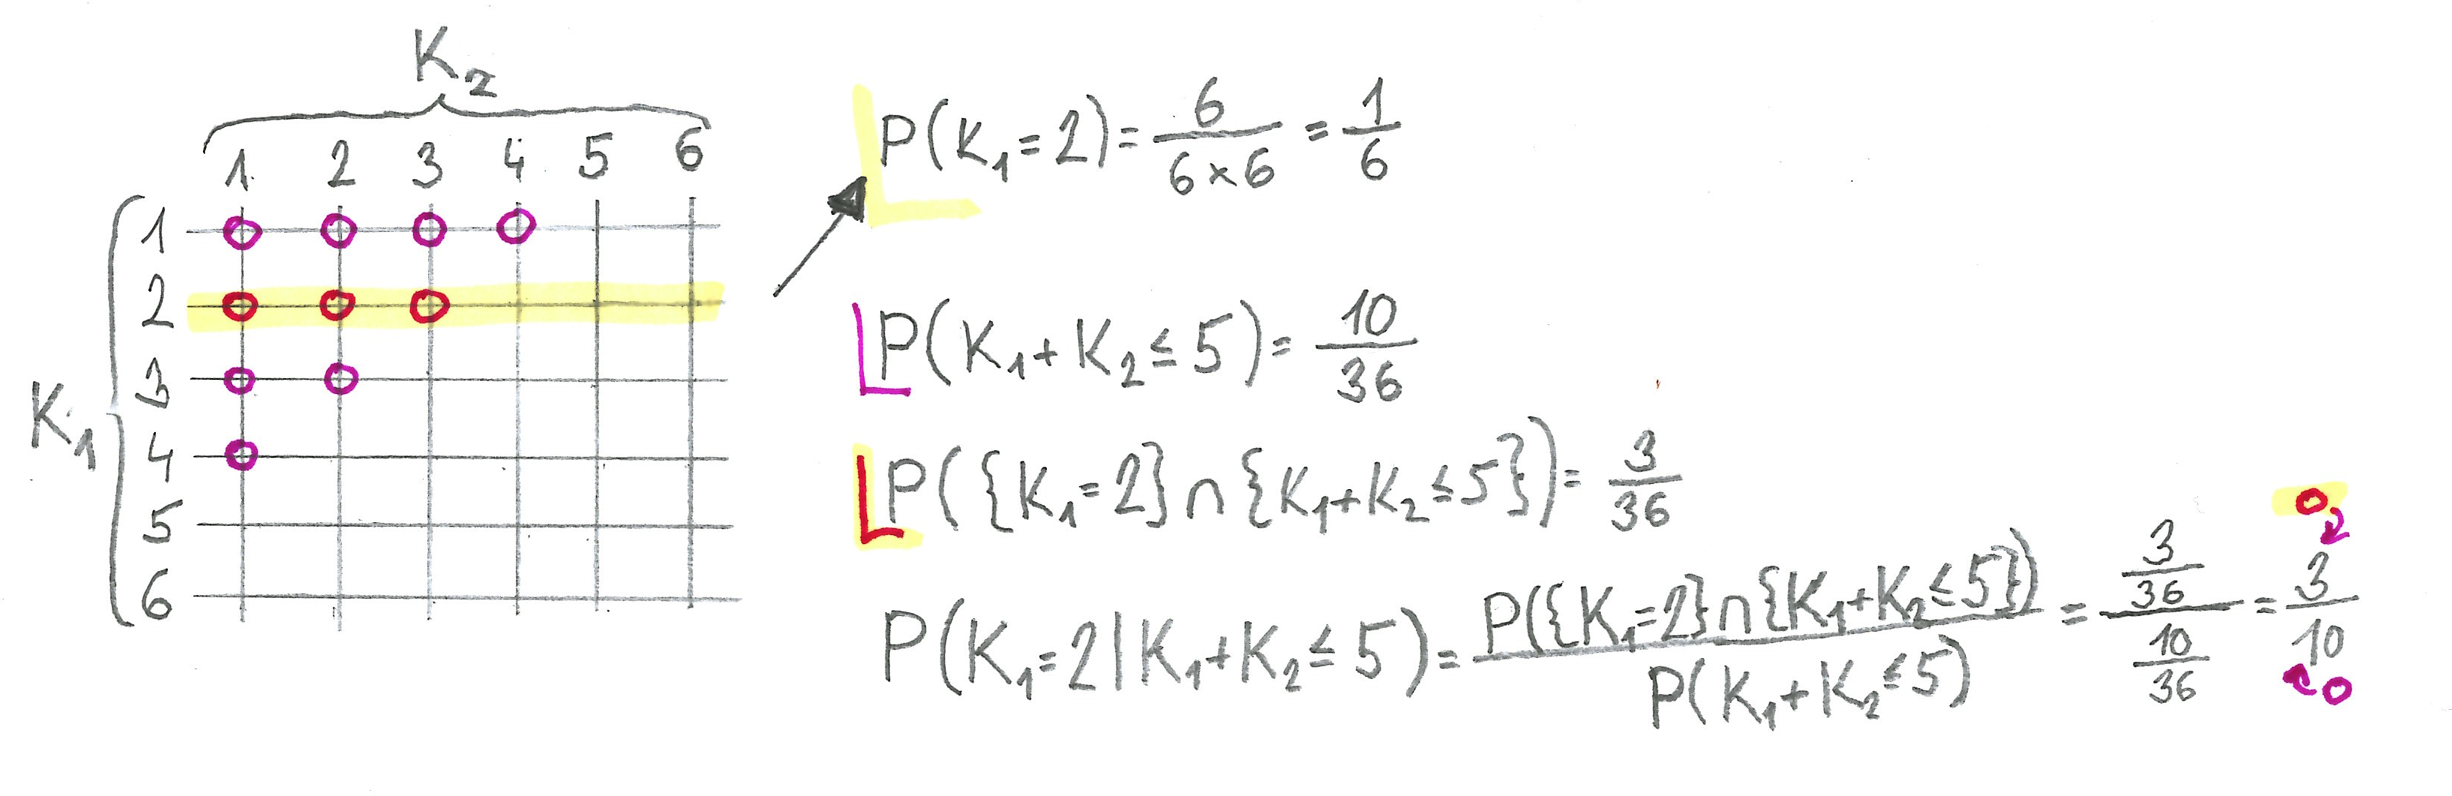 K₂
1 2 3 4 5 6
K₁
1
2
3
4
5
6
P(K₁=2)=6/(6×6)=1/6
P(K₁+K₂≤5)=10/36
P({K₁=2}∩{K₁+K₂≤5})=3/36
P(K₁=2|K₁+K₂≤5)=P({K₁=2}∩{K₁+K₂≤5})/P(K₁+K₂≤5)=(3/36)/(10/36)=3/10